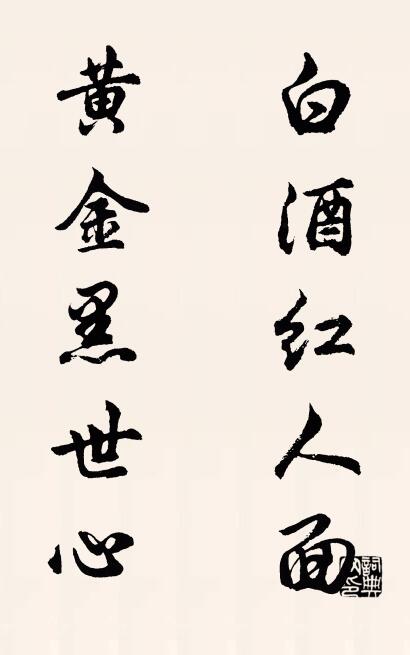 白酒红人面
黄金黑世心